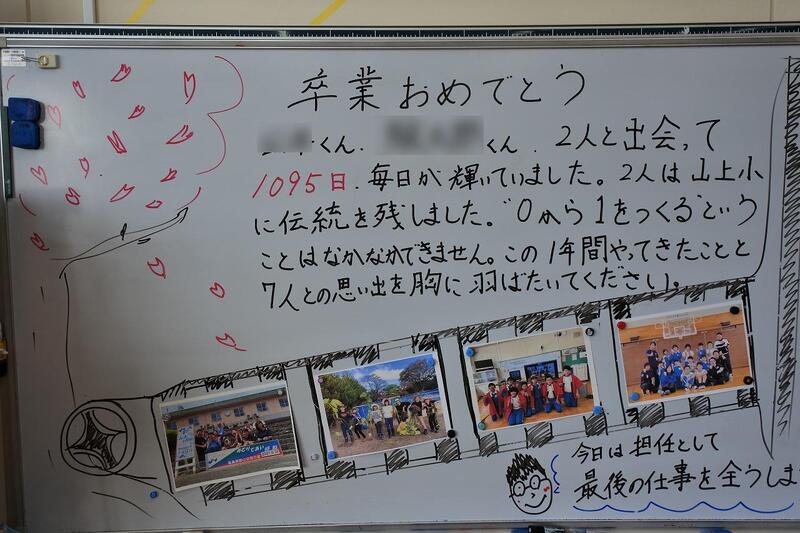 卒業おめでとう
くん、くん、2人と出会って
1095日、毎日が輝いていました。2人は山上小
に伝統を残しました。"0から1をつくる"という
ことはなかなかできません。この1年間やってきたことと
7人との思い出を胸に羽ばたいてください。
今日は担任として
最後の仕事を全うしま